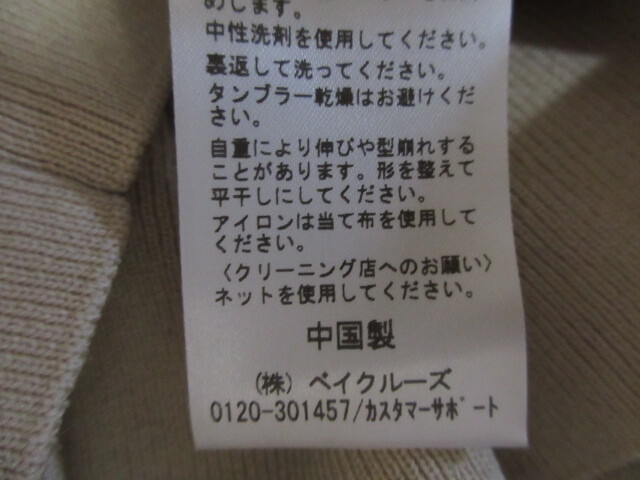 めします。
中性洗剤を使用してください。
裏返して洗ってください。
タンブラー乾燥はお避けくだ
さい。
自重により伸びや型崩れする
ことがあります。形を整えて
平干しにしてください。
アイロンは当て布を使用して
ください。
〈クリーニング店へのお願い〉
ネットを使用してください。
中国製
（株）ベイクルーズ
0120-301457/ｶｽﾀﾏｰｻﾎﾟｰﾄ